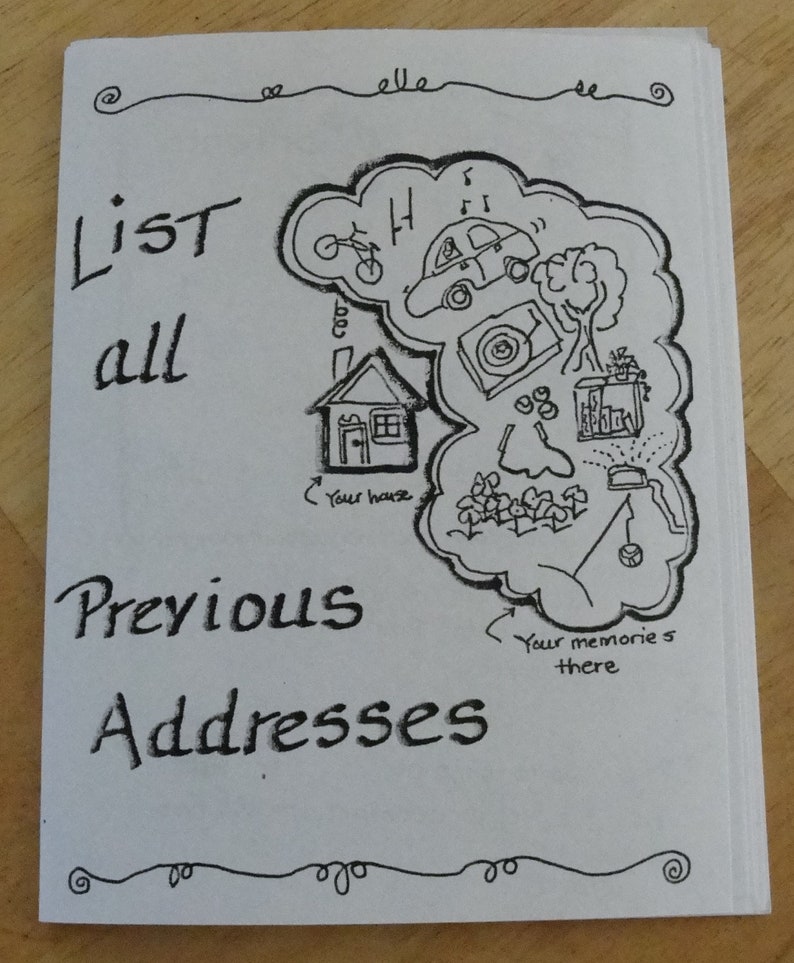 List
all
Your house
Previous
Your memories
there
Addresses